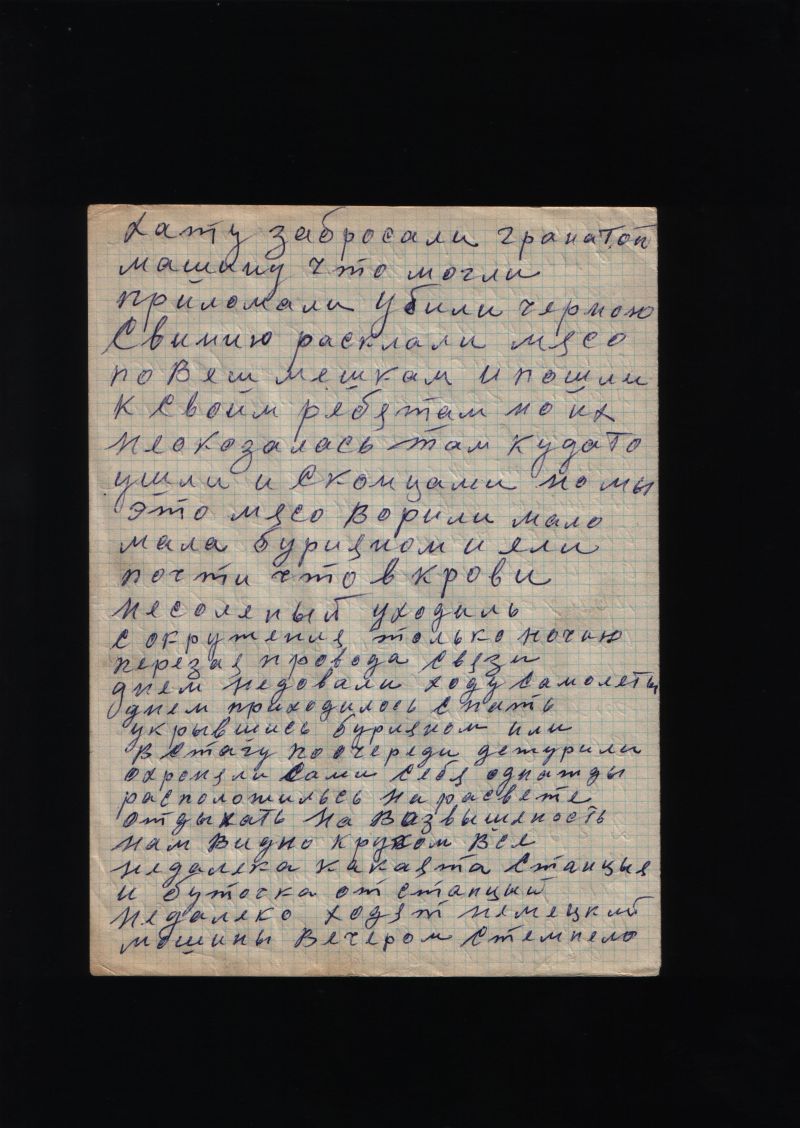 хату забросали гранатой
машину что могли
прйломали убили черною
Свинию расклали мясо
по Вещ мешкам и пошли
к Свойм ребятам но их
неоказалась там кудато
ушли и Сконцами но мы
это мясо Ворили мало
мала буряном и яли
почти что в крови
несоленый уходиль
с окружения только ночью
перезая провода Связи
днем недовали ходу Самолеты
днем приходилось Спать
укрывшись буряном или
В Стагу поочереди дежурили
охроняли Сами Себя однажды
расположильсь На расвете
отдыхать на Вазвышеность
нам Видно кругом Все
недалека какаята Станцыя
и буточка от станцый
недалеко ходят немецкий
мошины Вечером Стемнело